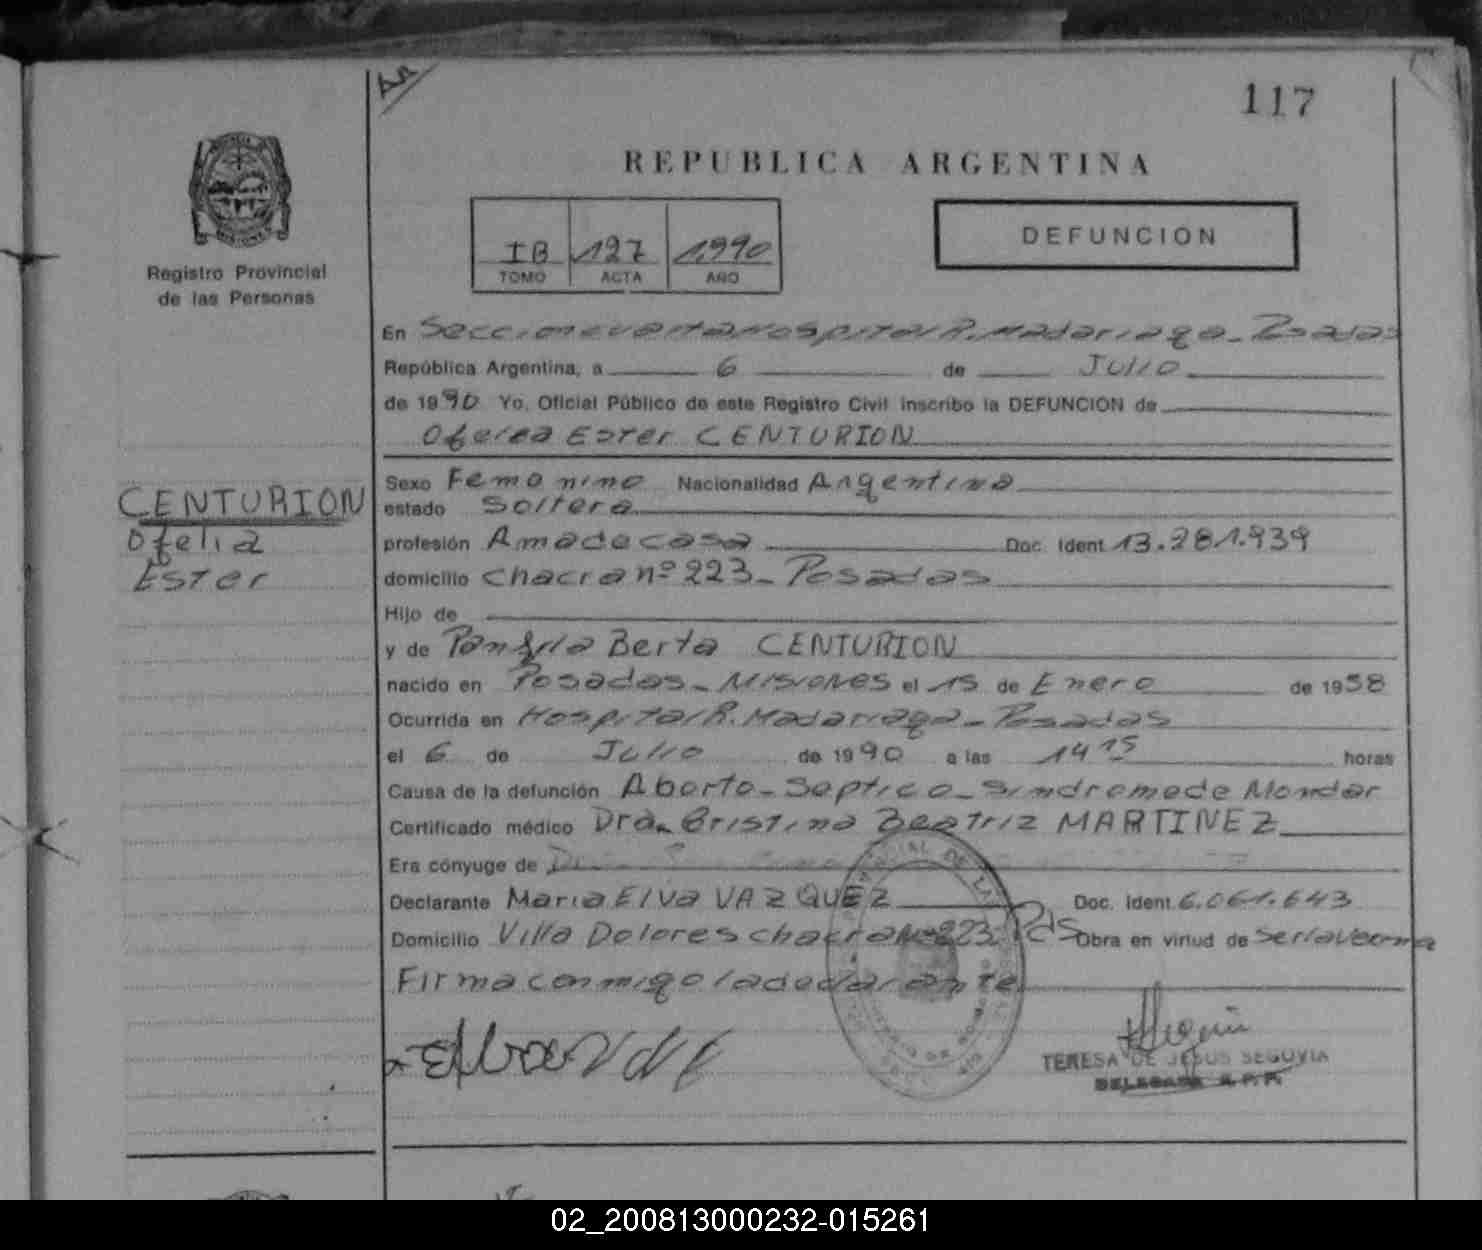 117
REPUBLICA ARGENTINA
Registro Provincial
de las Personas
IB 127 1990
TOMO ACTA AÑO
DEFUNCION
En Seccion cuarta Hospital R. Madariaga - Posadas
República Argentina, a 6 de Julio
de 1990 Yo, Oficial Público de este Registro Civil inscribo la DEFUNCION de
Ofelea Ester CENTURION
CENTURION
Ofelia
Ester
Sexo Femenino Nacionalidad Argentina
estado Soltera
profesión Ama de casa Doc. Ident 13.281.939
domicilio Chacra nº 223 - Posadas
Hijo de
y de Panfila Berta CENTURION
nacido en Posadas - Misiones el 15 de Enero de 1958
Ocurrida en Hospital R. Madariaga - Posadas
el 6 de Julio de 1990 a las 14 15 horas
Causa de la defunción Aborto - Septico - Sindrome de Mondor
Certificado médico Dra. Cristina Beatriz MARTINEZ
Era cónyuge de
Declarante Maria Elva VAZQUEZ Doc. Ident. 6.061.643
Domicilio Villa Dolores chacra Nº 223. Pdas Obra en virtud de ser la
Firma conmigo la declarante
TERESA DE JESUS SEGOVIA
02_200813000232-015261